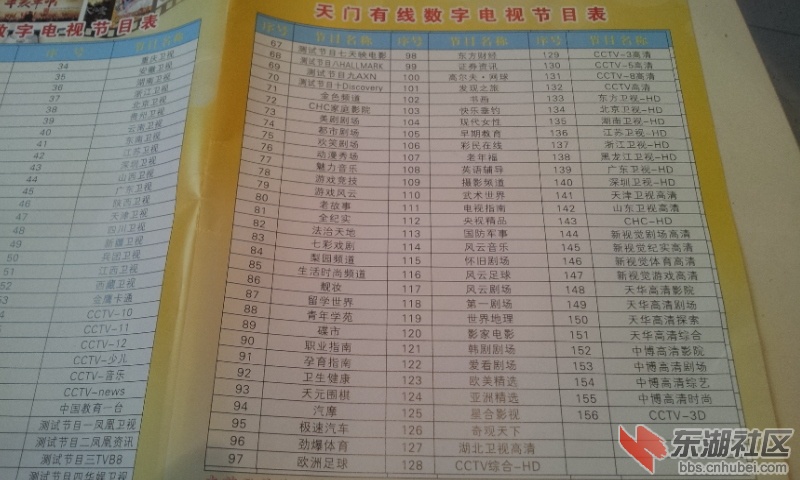 数字电视节目表
序号 节目名称
34 重庆卫视
35 安徽卫视
36 湖南卫视
37 浙江卫视
38 北京卫视
39 贵州卫视
40 云南卫视
41 东南卫视
42 江苏卫视
43 深圳卫视
44 山西卫视
45 广东卫视
46 陕西卫视
47 天津卫视
48 四川卫视
49 新疆卫视
50 兵团卫视
51 江西卫视
52 西藏卫视
53 金鹰卡通
CCTV-10
CCTV-11
CCTV-12
CCTV-少儿
CCTV-音乐
CCTV-news
中国教育一台
测试节目一凤凰卫视
测试节目二凤凰资讯
测试节目三TVB8
测试节目四华娱卫视
天门有线数字电视节目表
序号 节目名称 序号 节目名称 序号 节目名称
67 测试节目七天映电影 98 东方财经 129 CCTV-3高清
68 测试节目八HALLMARK 99 证券资讯 130 CCTV-5高清
69 测试节目九AXN 100 高尔夫·网球 131 CCTV-8高清
70 测试节目十Discovery 101 发现之旅 132 CCTV高清
71 金色频道 102 书画 133 东方卫视-HD
72 CHC家庭影院 103 快乐垂钓 134 北京卫视-HD
73 美剧剧场 104 现代女性 135 湖南卫视-HD
74 都市剧场 105 早期教育 136 江苏卫视-HD
75 欢笑剧场 106 彩民在线 137 浙江卫视-HD
76 动漫秀场 107 老年福 138 黑龙江卫视-HD
77 魅力音乐 108 英语辅导 139 广东卫视-HD
78 游戏竞技 109 摄影频道 140 深圳卫视-HD
79 游戏风云 110 武术世界 141 天津卫视高清
80 老故事 111 电视指南 142 山东卫视高清
81 全纪实 112 央视精品 143 CHC-HD
82 法治天地 113 国防军事 144 新视觉剧场高清
83 七彩戏剧 114 风云音乐 145 新视觉纪实高清
84 梨园频道 115 怀旧剧场 146 新视觉体育高清
85 生活时尚频道 116 风云足球 147 新视觉游戏高清
86 靓妆 117 风云剧场 148 天华高清影院
87 留学世界 118 第一剧场 149 天华高清剧场
88 青年学苑 119 世界地理 150 天华高清探索
89 碟市 120 影家电影 151 天华高清综合
90 职业指南 121 韩剧剧场 152 中博高清影院
91 孕育指南 122 爱看剧场 153 中博高清剧场
92 卫生健康 123 欧美精选 154 中博高清综艺
93 天元围棋 124 亚洲精选 155 中博高清时尚
94 汽摩 125 星合影视 156 CCTV-3D
95 极速汽车 126 奇观天下
96 劲爆体育 127 湖北卫视高清
97 欧洲足球 128 CCTV综合-HD
东湖社区
bbs.cnhubei.com